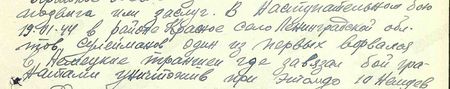 подвига или заслуг. В наступательном бою
19-01-44 в районе Красное село Ленинградской обл-
тов. Сулейманов один из первых ворвался
в Немецкие траншеи где завязал бой гра-
натами уничтожив при этом до 10 Немцев